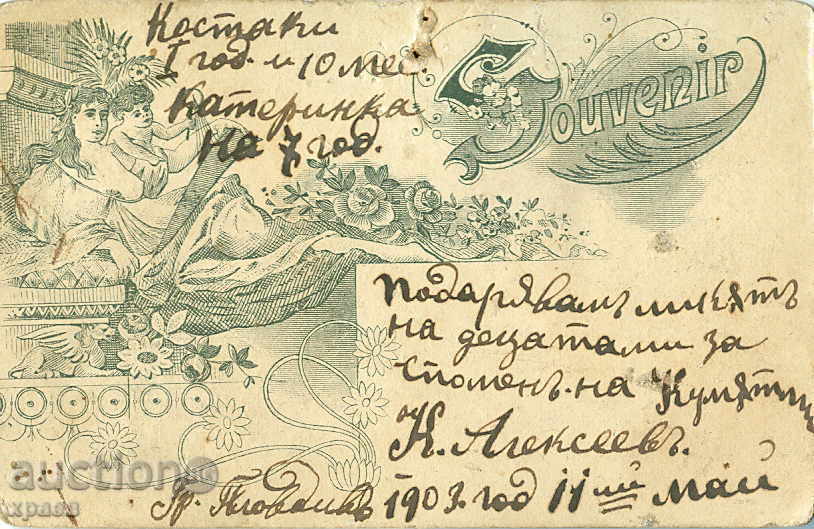 Костаки
I год. и 10 мес.
Катеринка
на 7 год.
Souvenir
Подарявамъ ликътъ
на децатами за
споменъ на Кумътъ
Н. Алексеевъ.
Гр. Пловдивъ 1903 год 11 ий май
auction